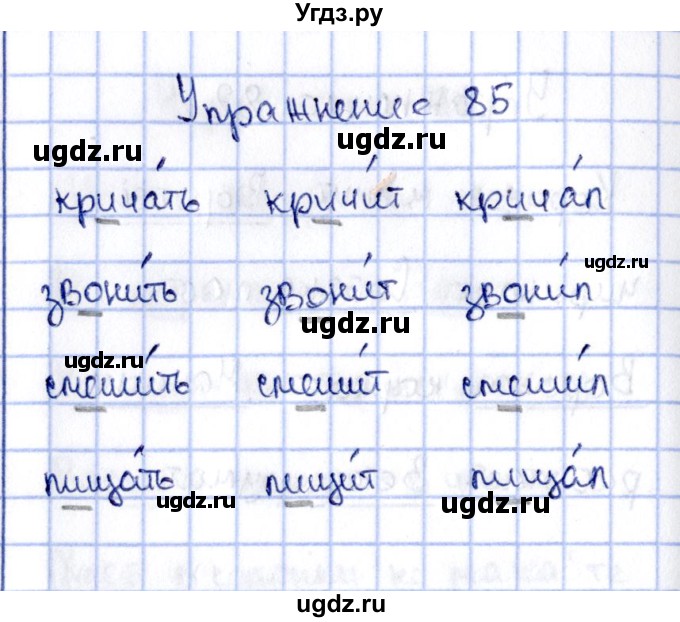 Угдз.ру
Упражнение 85
ugdz.ru ugdz.ru
крича́ть кричи́т крича́л
ugdz.ru
звони́ть звони́т звони́л
ugdz.ru
ugdz.ru
смеши́ть смеши́т смеши́л
пища́ть пищи́т пища́л
ugdz.ru ugdz.ru
ugdz.ru